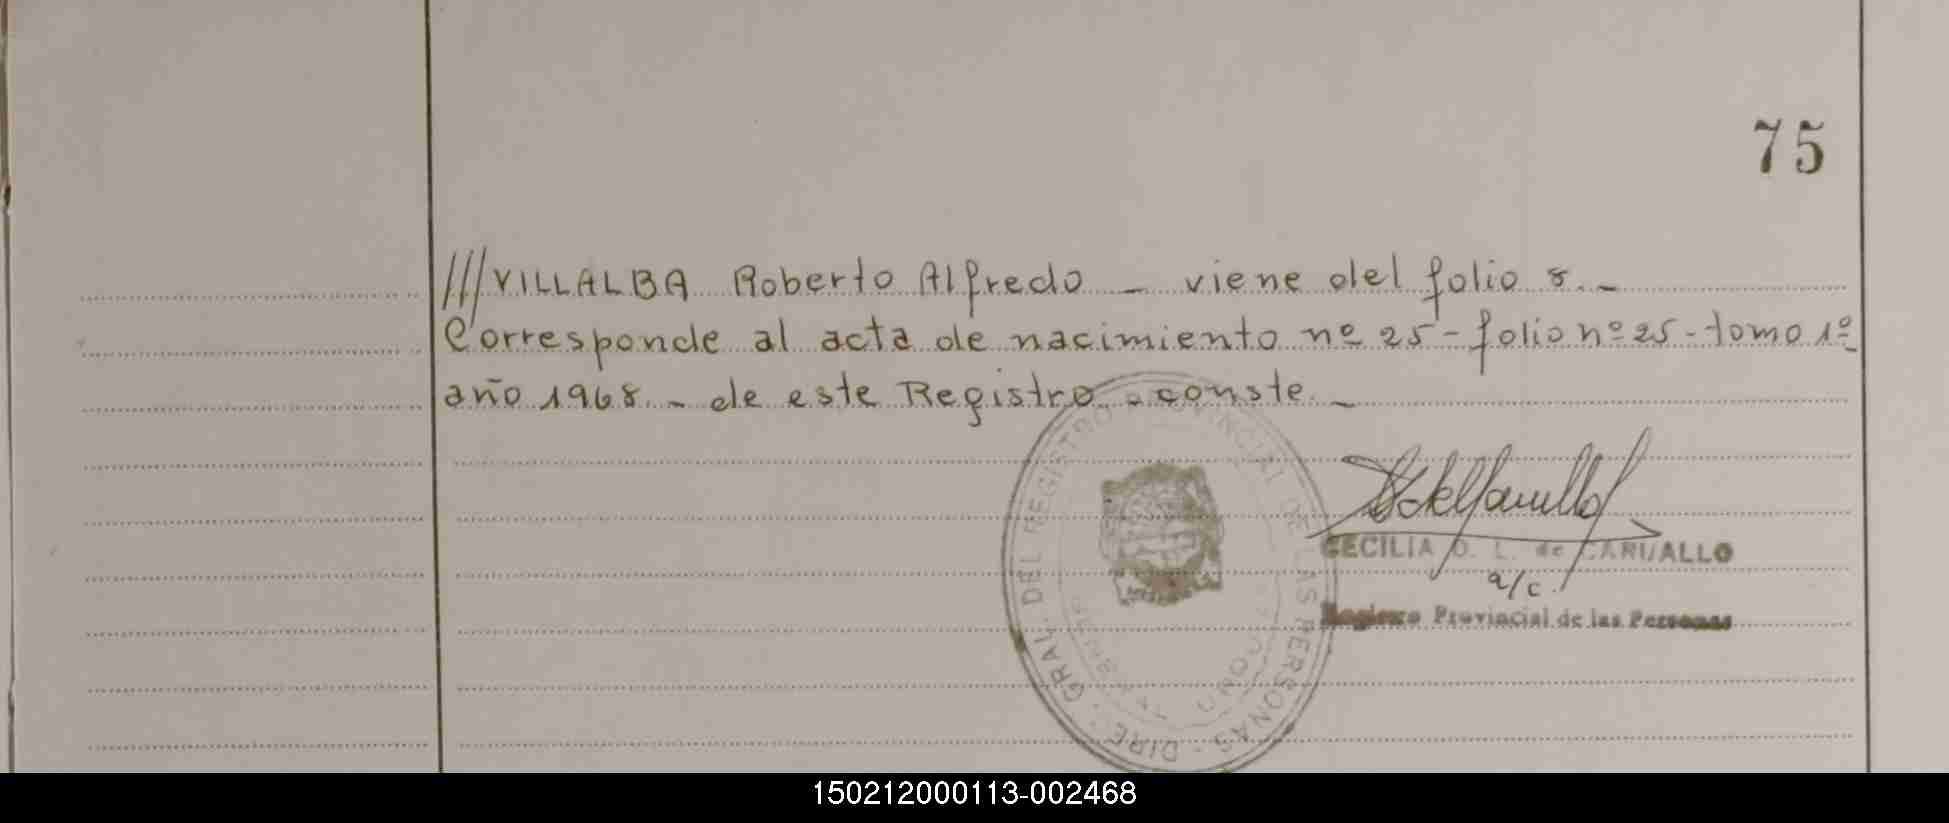 75
///VILLALBA Roberto Alfredo - viene del folio 8.-
Corresponde al acta de nacimiento nº 25 - folio nº 25 - tomo 1º
año 1968. - de este Registro. - conste. -
CECILIA O. L. de CARUALLO
a/c.
Registro Provincial de las Personas
DIRE. GRAL. DEL REGISTRO PROVINCIAL DE LAS PERSONAS
150212000113-002468